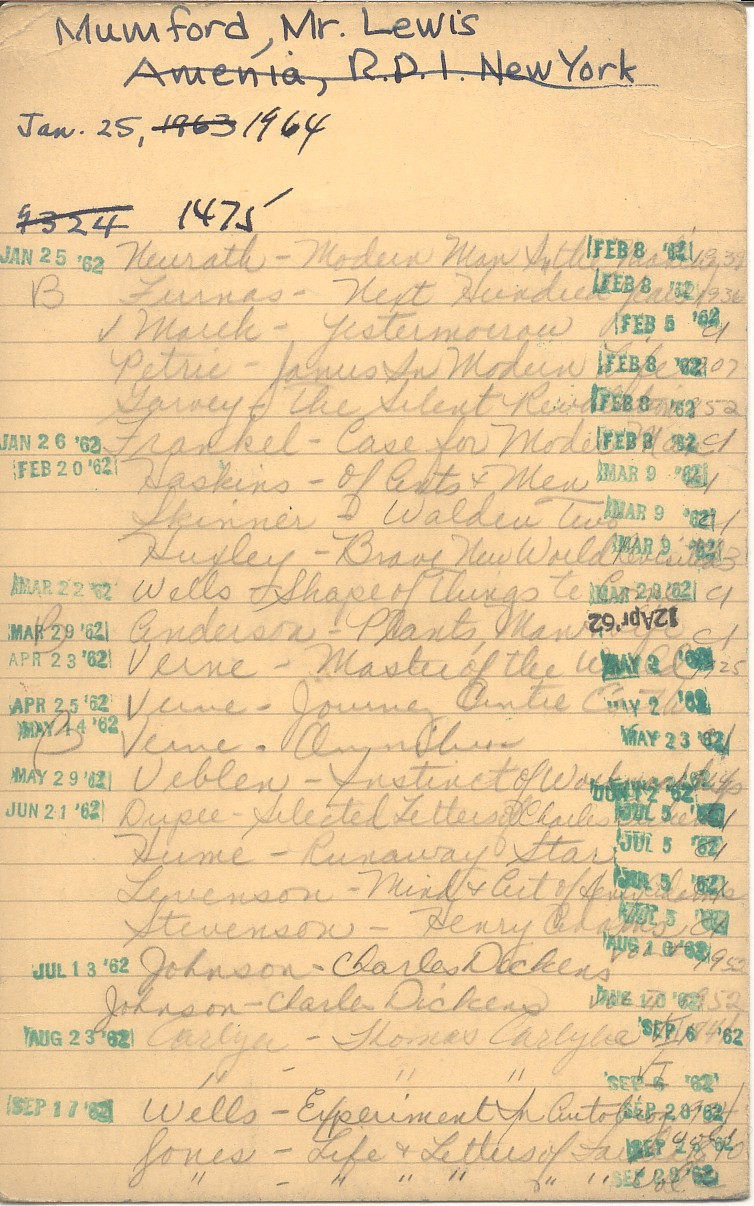 Mumford, Mr. Lewis
Amenia, R.D.1. New York
Jan. 25, 1963 1964
9324 1475
JAN 25 '62 Neurath - Modern Man In the Making FEB 8 '62 1939
B Furnas - Next Hundred Years FEB 8 '62 1936
√ Marek - Yestermorrow FEB 5 '62 c1
Petrie - Janus In Modern Life FEB 8 '62 1907
Garvey - The Silent Revolution FEB 8 '62 1952
JAN 26 '62 Frankel - Case for Modern Man FEB 8 '62 c1
FEB 20 '62 Haskins - Of Ants & Men MAR 9 '62 c1
Skinner - Walden Two MAR 9 '62 c1
Huxley - Brave New World Revisited MAR 9 '62
MAR 22 '62 Wells - Shape of Things to Come MAR 28 '62 c1
MAR 29 '62 B Anderson - Plants, Man & Life 12 Apr '62 c1
APR 23 '62 Verne - Master of the World MAY 2 '62
APR 25 '62 Verne - Journey Centre MAY 2 '62
MAY 14 '62 B Verne - MAY 23 '62
MAY 29 '62 Veblen - Instinct of Workmanship JUN 12 '62
JUN 21 '62 Dupee - Selected Letters of Charles Dickens JUL 5 '62 c1
Hume - Runaway Star JUL 5 '62 c1
Levenson - Mind & Art of Henry Adams JUL 5 '62
Stevenson - Henry Adams JUL 5 '62 c1
JUL 13 '62 Johnson - Charles Dickens AUG 10 '62 1952
Johnson - Charles Dickens AUG 10 '62 1952
AUG 23 '62 Carlyle - Thomas Carlyle SEP 6 '62
" - " " SEP 6 '62
SEP 17 '62 Wells - Experiment In Autobiog SEP 28 '62
Jones - Life & Letters of SEP 28 '62
" - " " " " SEP 28 '62